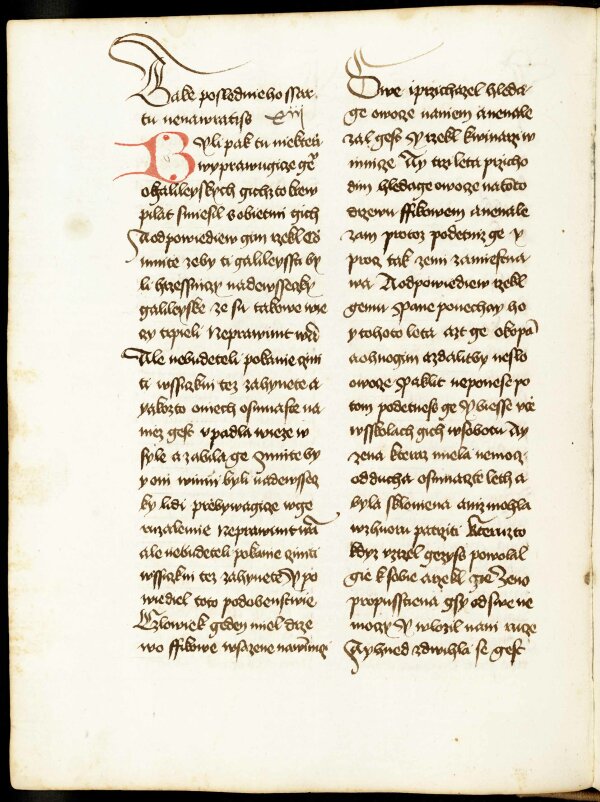 Take poslednieho ssar
tu nenawratiss xiii
Byli pak tu niekteri
wyprawugicze ge
o galileyskych gichzto krew
pilat smiesil s obietmi gich
A odpowiediew gim rzekl Co
mnite zeby ti galileyssti by
li hrzessniczy nadewsseczky
galileyske ze su takowe wie
czy trpieli Neprawimt wam
Ale nebudeteli pokanie czini
ti wssiczkni tez zahynete a
yakozto oniech osmnaste na
niez gest vpadla wieze w
syloe a zabila ge Mnite by
y oni winni byli nadewssecz
ky lidi przebywagicze w ge
ruzalemie Neprawimt wam
ale nebudeteli pokanie cziniti
wssiczkni tez zahynete Y po
wiediel toto podobenstwie
Czlowiek geden miel drze
wo ffikowe wsazene na winniczi
Swe i przichazel hleda
ge owocze naniem a nenale
zal gest Y rzekl k winarzi w
innicze Ay trz leta przicho
dim hledage owocze na tomto
drzewu ffikowem a nenale
zam protoz podetniz ge y
procz tak zemi zamiestna
wa A odpowiediew rzekl
gemu Pane ponechay ho
y tohoto leta azt ge okopam
a ohnogim a zda lit by neslo
owocze Paklit neponese po
tom podetness ge Y biesse vcze
w sskolach gich w sobotu Ay
zena kteraz miela nemocz
od ducha osmnazte leth a
byla sklonena aniz mohla
wzhuoru patrziti Kteruzto
kdyz vzrzel gezyss powolal
gie k sobie a rzekl gie Zeno
propusstiena gsy od swe ne
moczy Y wlozil na ni rucze
A yhned zdwihla se gest